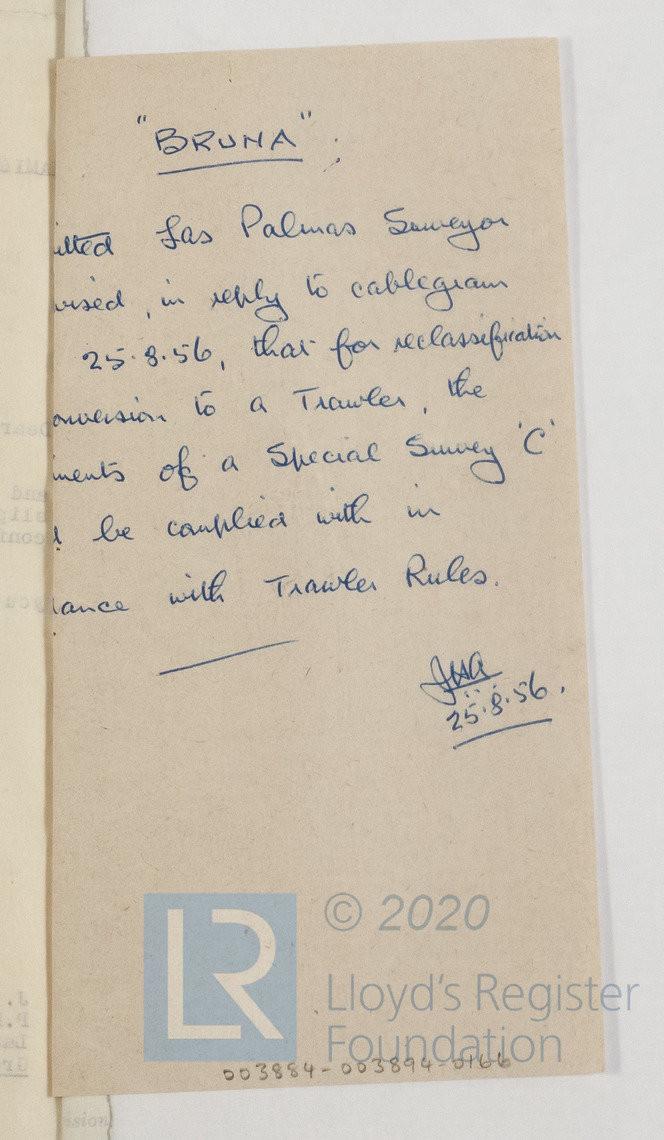 "BRUNA":
itted Las Palmas Surveyor
vised, in reply to cablegram
25.8.56, that for reclassification
onversion to a Trawler, the
ments of a Special Survey 'C'
d be complied with in
dance with Trawler Rules.
25.8.56.
LR
© 2020
Lloyd's Register
Foundation
003884-003894-0166